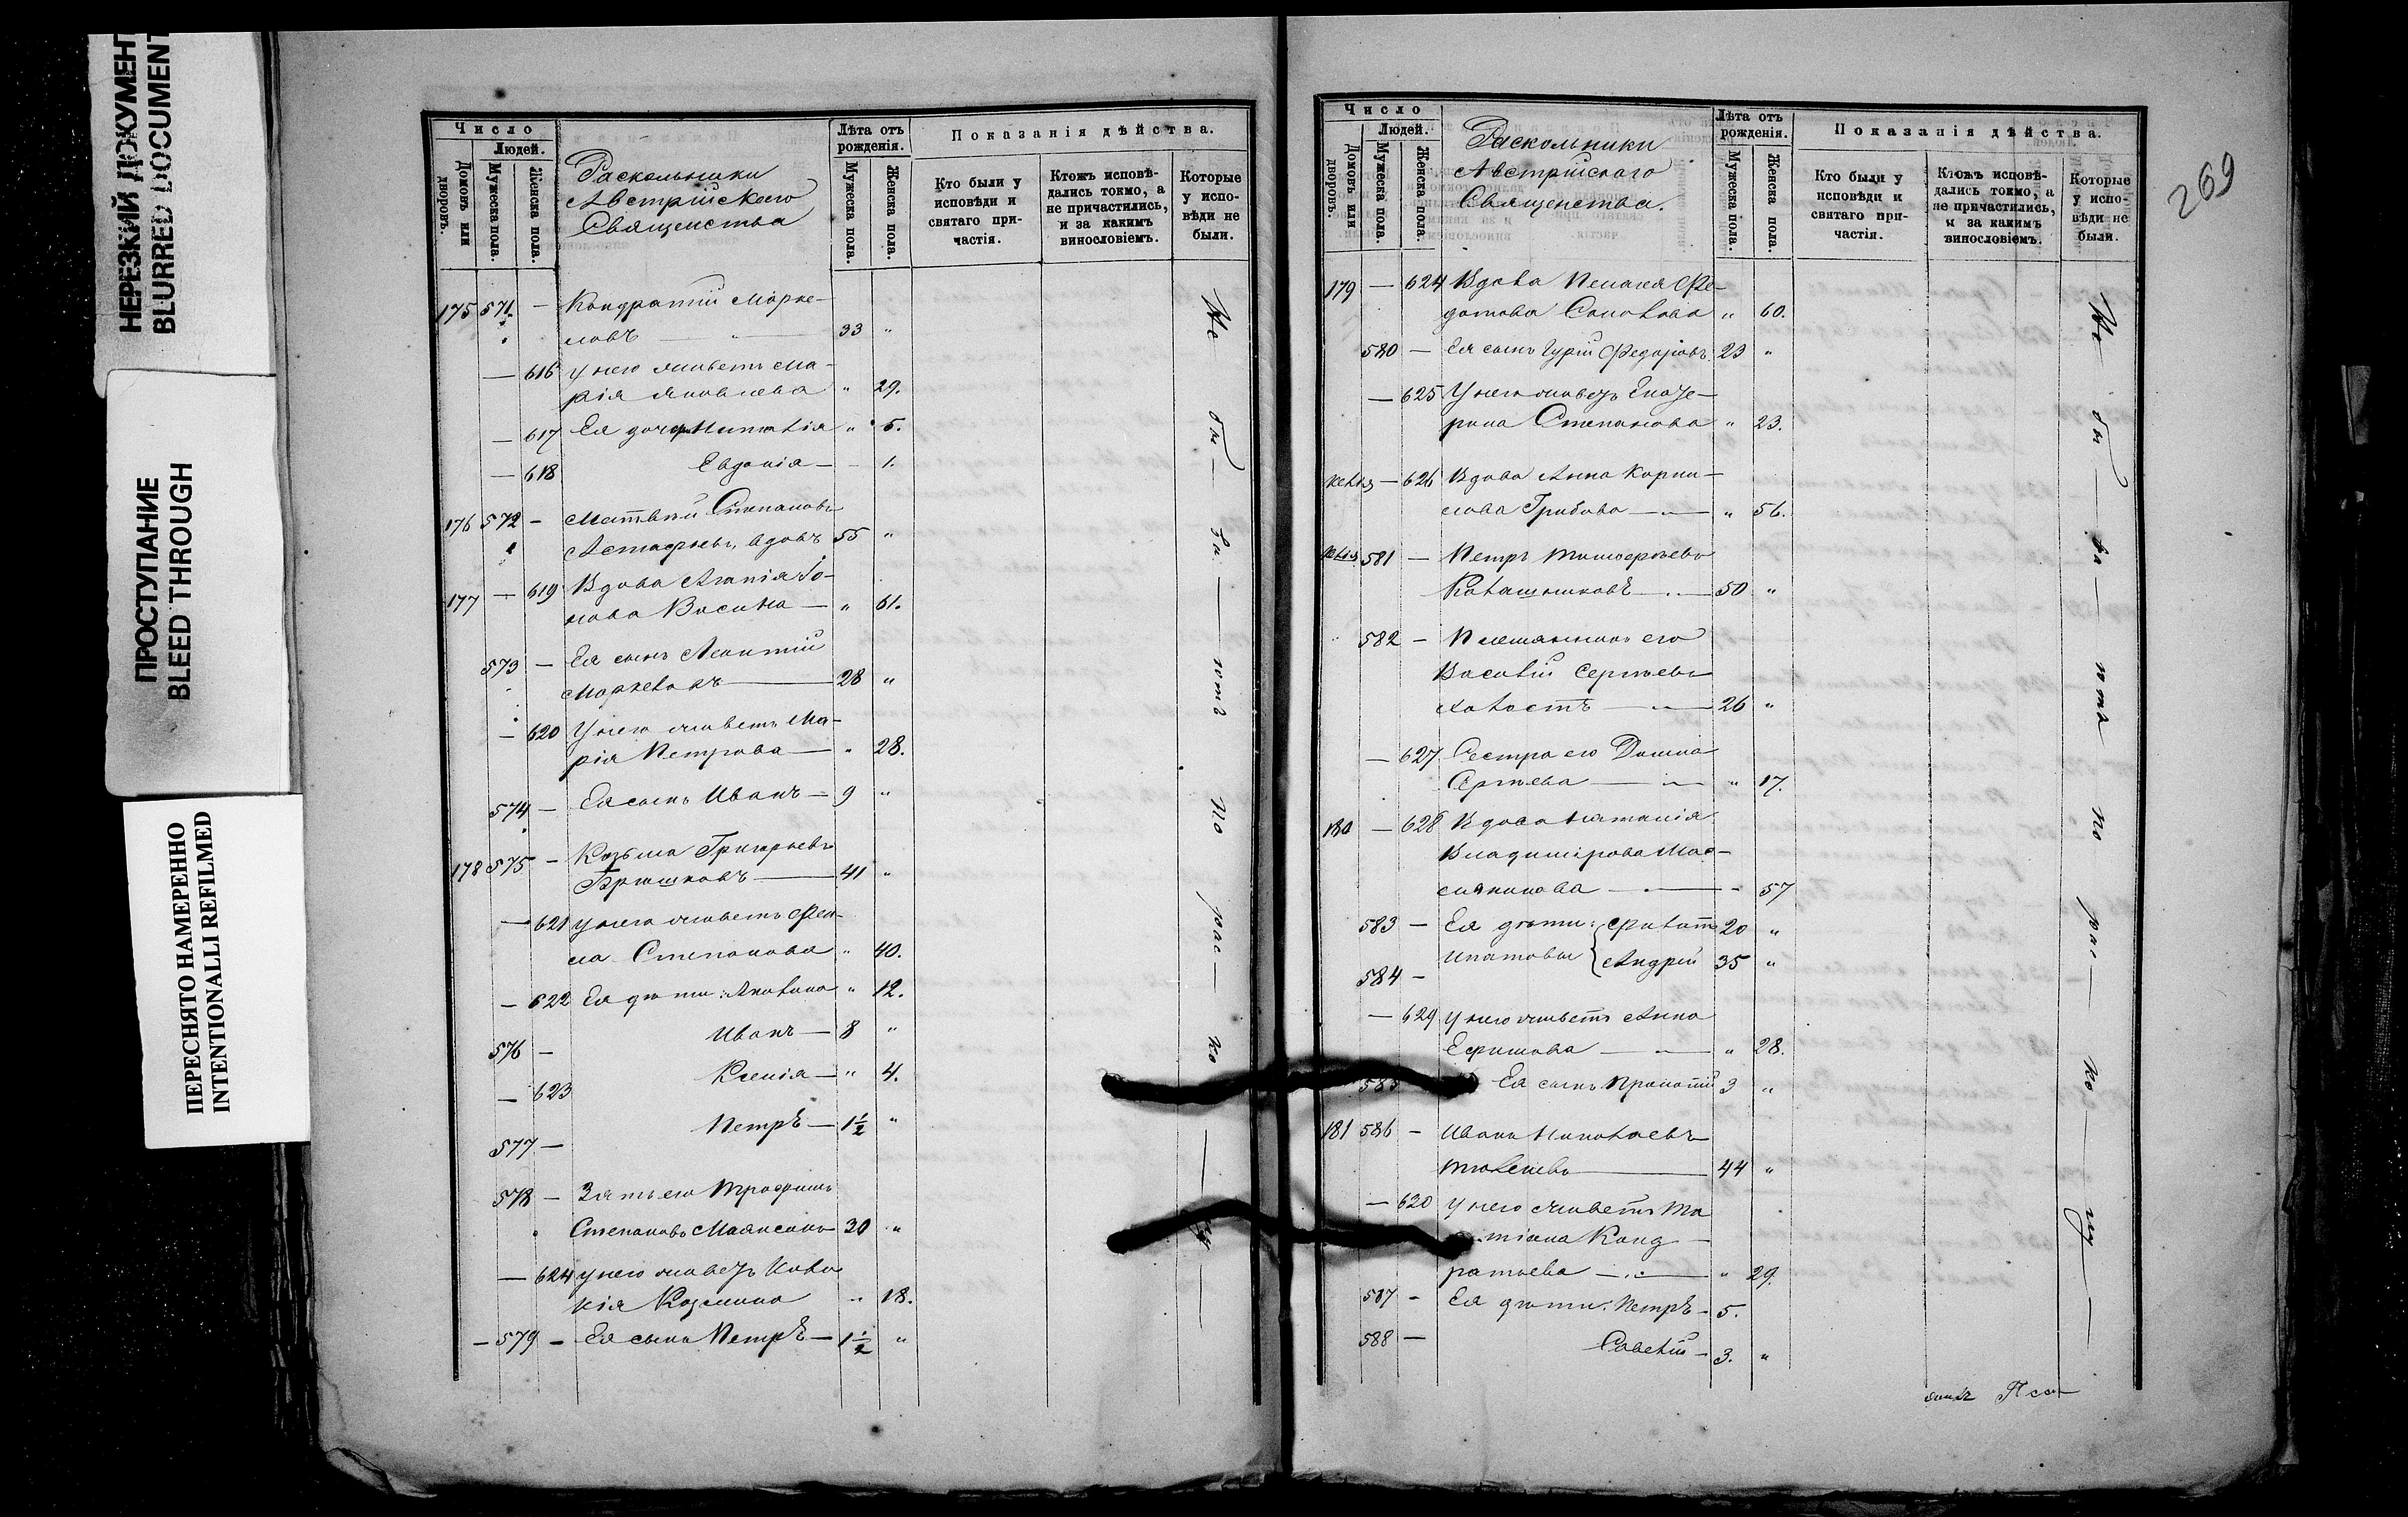 НЕРЕЗКИЙ ДОКУМЕНТ
BLURRED DOCUMENT
ПРОСТУПАНИЕ
BLEED THROUGH
ПЕРЕСНЯТО НАМЕРЕННО
INTENTIONALLI REFILMED
Число
Людей.
Домовъ или дворовъ.
Мужеска пола.
Женска пола.
Раскольники
Австрійскаго
Священства
Лѣта отъ рожденія.
Мужеска пола.
Женска пола.
Показанія дѣйства.
Кто были у исповѣди и святаго при-частія.
Ктожъ исповѣ-дались токмо, а не причастились, и за какимъ винословіемъ.
Которые у испо-вѣди не были.
175 571. — Кондратій Марке-
ловъ — 33 "
— 616 у него живетъ Ма-
рія Яковлева " 29.
— 617 Ея дочери Наталія " 5.
— 618 Евдокія — - 1.
176 572 — Матвѣй Степановъ
Астафьевъ, вдовъ 55 "
177 — 619 Вдова Агапія Іо-
нова Васина — " 61.
573 — Ея сынъ Леонтій
Маркеловъ — 28 "
— 620 У него живетъ Ма-
рія Петрова — " 28.
574 — Ея сынъ Иванъ — 9 "
178 575 — Козьма Григорьевъ
Брюшковъ — 41 "
— 621 у него живетъ Фек-
ла Степанова " 40.
— 622 Ея дѣти: Акилина " 12.
576 — Иванъ — 8 "
— 623 Ксенія — " 4.
577 — Петръ — 1½ "
578 — Зять его Трофимъ
Степановъ 30 "
— 624 у него живетъ
кія Козмина " 18.
— 579 — Ея сынъ Петръ — 1½ "
Не бы — ли — по рас — ко — лу —
Число
Людей.
Домовъ или дворовъ.
Мужеска пола.
Женска пола.
Раскольники
Австрійскаго
Священства.
Лѣта отъ рожденія.
Мужеска пола.
Женска пола.
Показанія дѣйства.
Кто были у исповѣди и святаго при-частія.
Ктожъ исповѣ-дались токмо, а не причастились, и за какимъ винословіемъ.
Которые у испо-вѣди не были.
269
179 — 624 Вдова Пелагея Фе-
дотова " 60.
580 — Ея сынъ Гурій Федоровъ 23 "
— 625 У него живетъ Екате-
рина Степанова " 23.
келья — 626 Вдова Анна Корни-
лова Грибова — " 56.
келья 581 — Петръ Тимофѣевъ
50 "
582 — Племянникъ его
Василій Сергѣевъ
Хвостъ — 26 "
— 627 Сестра его Домна
Сергѣева — " 17.
180 — 628 Вдова Наталія
Владимірова Мас-
ляникова — - 57
583 — Ея дѣти: 20 "
584 — Ипатовы { Андрей 35 "
— 629 у него живетъ Анна
Ефимова — " 28.
585 Ея сынъ 3 "
181 586 — Иванъ Николаевъ
44 "
— 630 у него живетъ Та
тіана Конд-
ратьева — " 29.
587 — Ея дѣти: Петръ — 5.
588 — Савелій — 3. "
Не бы — ли — по рас — ко — лу —